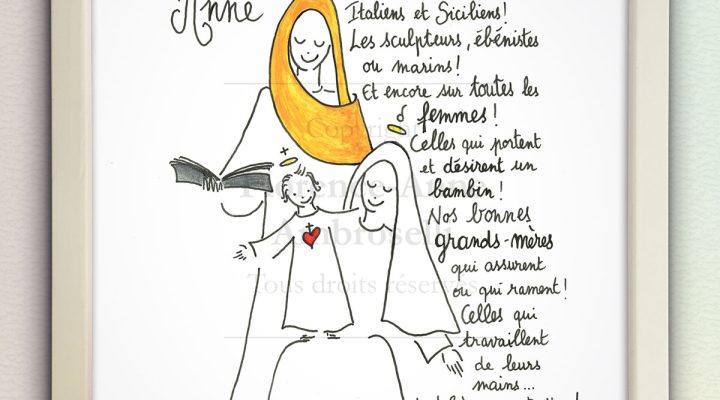 Anne
Italiens et Siciliens!
Les sculpteurs, ébénistes
ou marins!
Et encore sur toutes les
femmes!
Celles qui portent
et désirent un
bambin!
Nos bonnes
grands-mères
qui assurent
ou qui rament!
Celles qui
travaillent
de leurs
mains...
Copyright
Florence-Anne
Ambroselli
Tous droits réservés